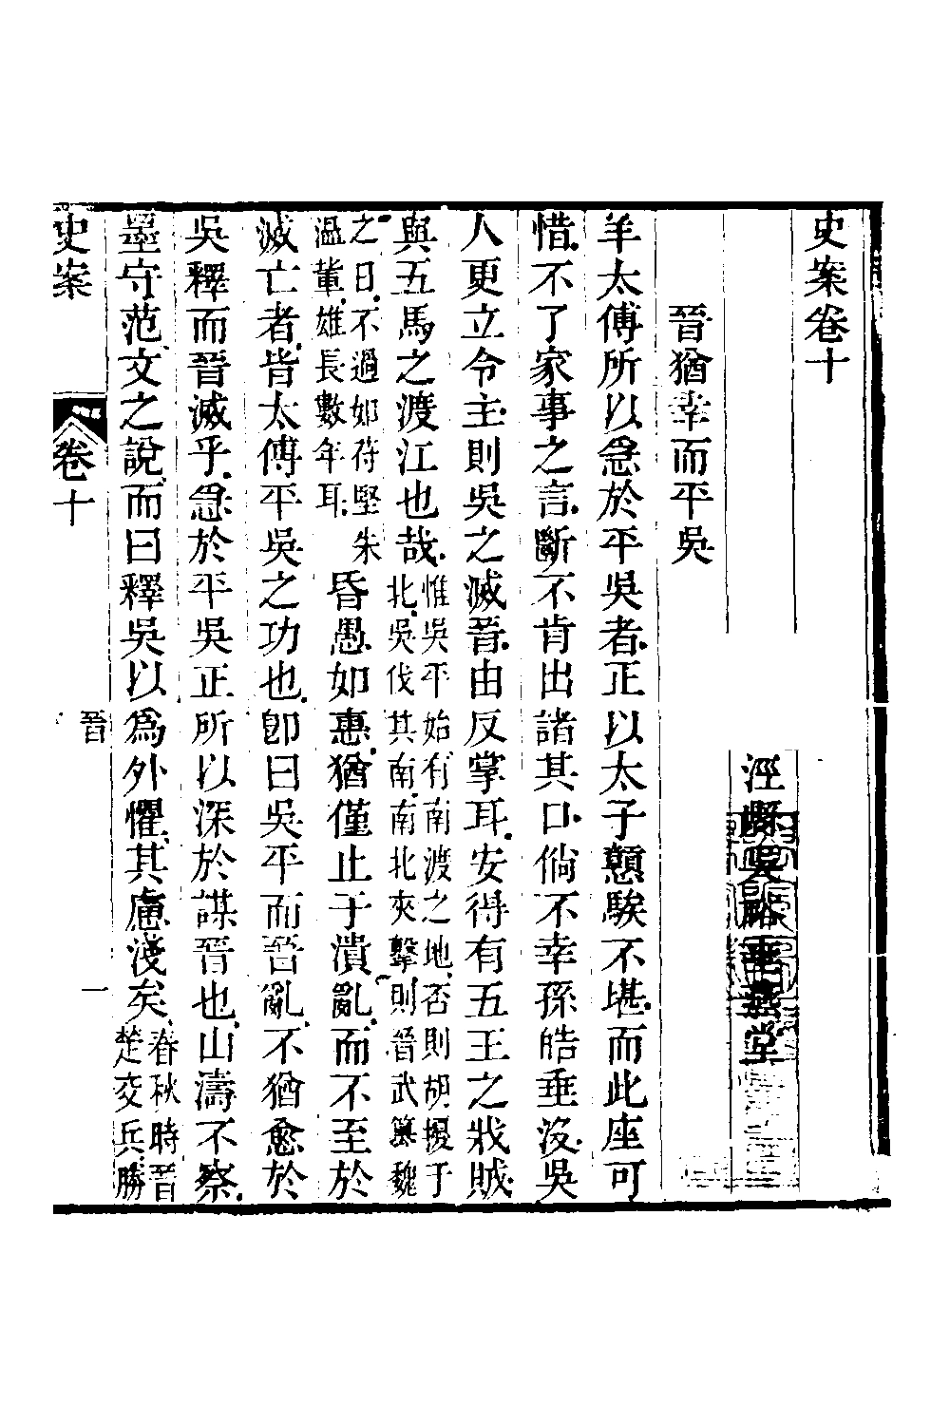 史案卷十
涇縣吳裕垂燕堂
晉猶幸而平吳
羊太傅所以急於平吳者正以太子戇騃不堪而此座可
惜不了家事之言斷不肯出諸其口倘不幸孫皓垂沒吳
人更立令主則吳之滅晉由反掌耳安得有五王之戕賊
與五馬之渡江也哉惟吳平始有南渡之地否則胡擾于
北吳伐其南南北夾擊則晉武篡魏
之日不過如苻堅朱
溫輩雄長數年耳昏愚如惠猶僅止于潰亂而不至於
滅亡者皆太傅平吳之功也卽曰吳平而晉亂不猶愈於
吳釋而晉滅乎急於平吳正所以深於謀晉也山濤不察
墨守范文之說而曰釋吳以爲外懼其慮淺矣春秋時晉
楚交兵勝
史案
卷十
晉
一